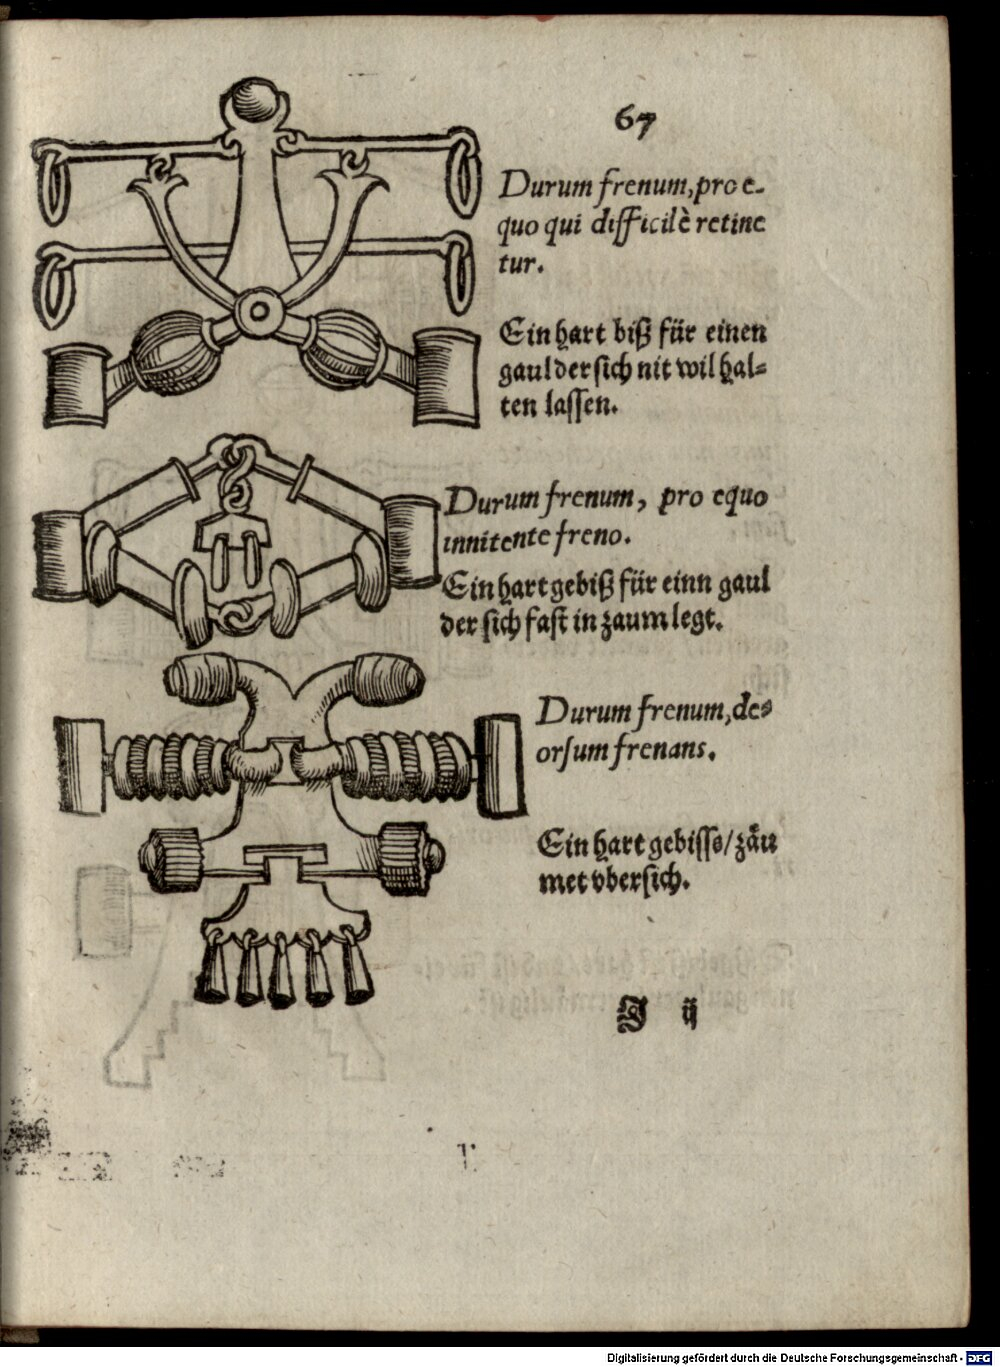 67
Durum frenum, pro e-
quo qui difficilè retine
tur.
Ein hart biß für einen
gaul der sich nit wil hal-
ten lassen.
Durum frenum, pro equo
innitente freno.
Ein hart gebiß für einn gaul
der sich fast in zaum legt.
Durum frenum, de-
orsum frenans.
Ein hart gebisse/ zäu
met vbersich.
J ij
Digitalisierung gefördert durch die Deutsche Forschungsgemeinschaft - DFG